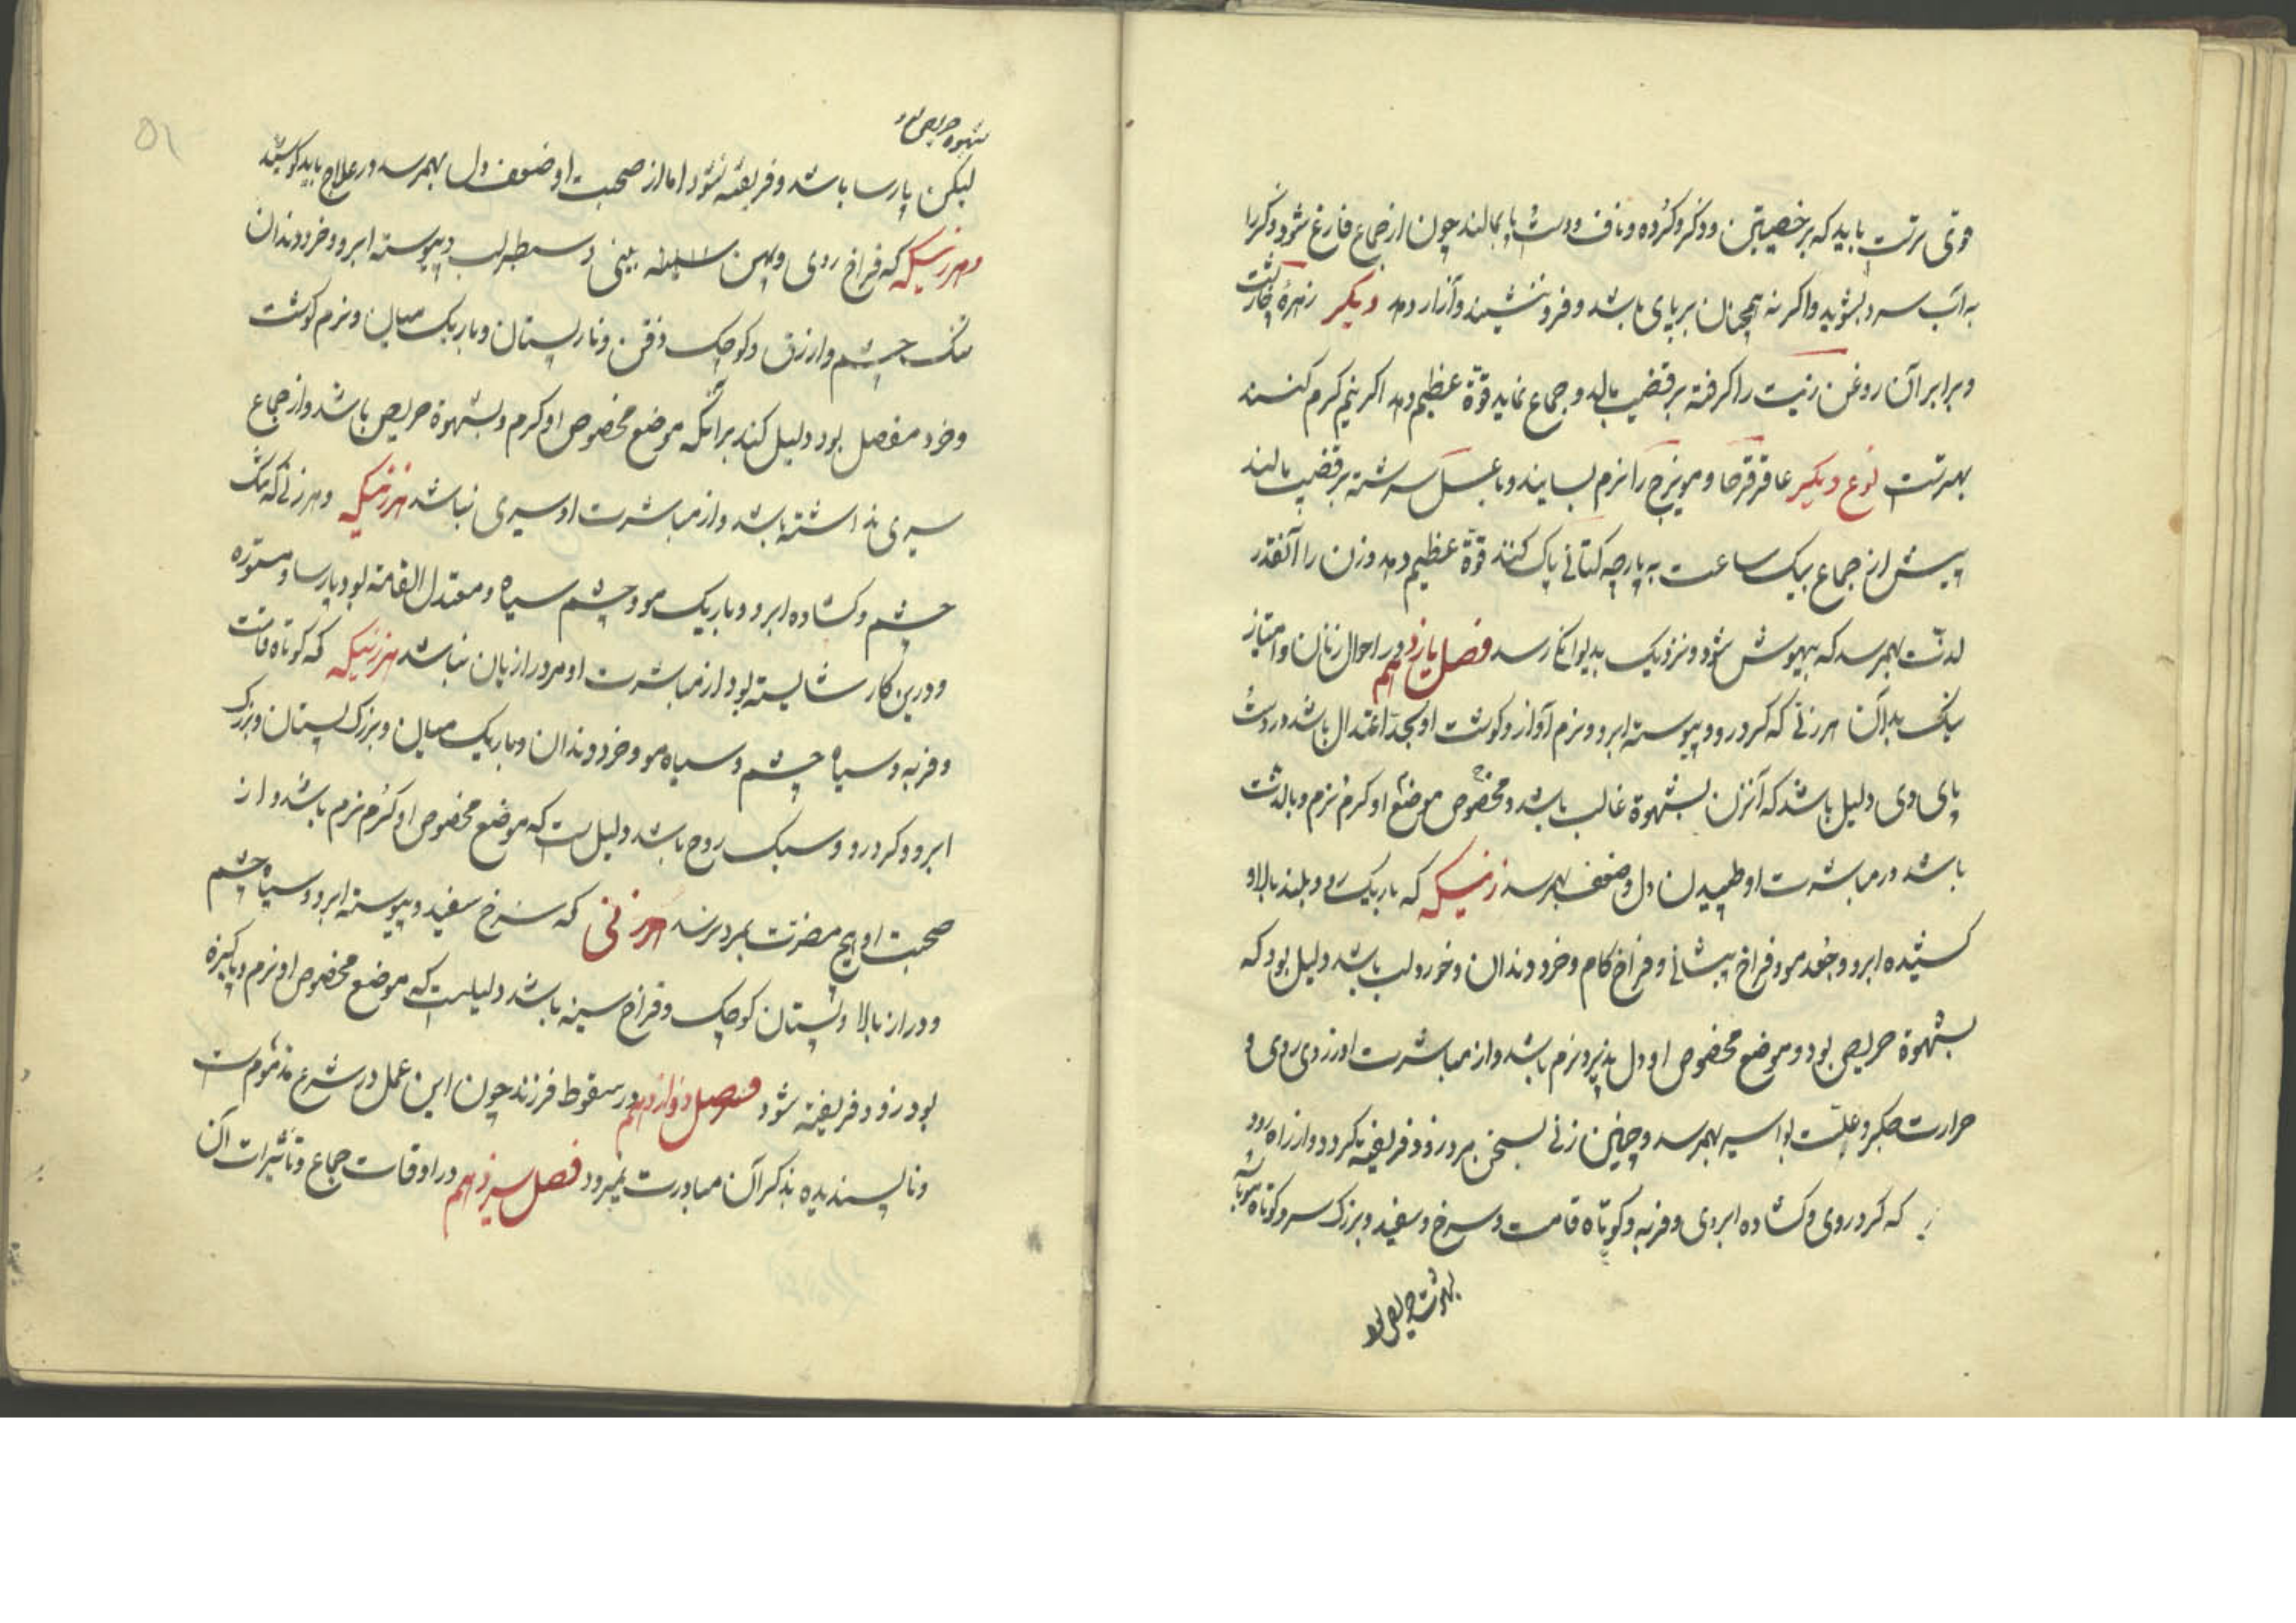 قوی ترتب باید که بر خصیتین و ذکر و کرده و ناف و پشت پا بمالند چون از جماع فارغ شود ذکر را
به آب سرد بشوید و اگر نه همچنان بر پای باشد و فرو ننشیند و آزار دهد دیکر زهره
و برابر آن روغن زیت را گرفته بر قضیب مالد و جماع نماید قوة عظیم دهد اگر نیم گرم کنند
بهترتست نوع دیکر عاقرقرحا و مویزج را نرم بسایند و با عسل سرشته بر قضیب مالند
پیش از جماع بیک ساعت به پارچه کتانی پاک کنند قوة عظیم دهد و زن را آنقدر
لذت بهمرسد که بیهوش شود و نزدیک بدیوانکی رسد فصل یازدهم در احوال زنان و امتیاز
نیک بدان هر زنی که کرد رو و پیوسته ابرو و نرم آواز و کوشت او بحد اعتدال باشد در پشت
پای وی دلیل باشد که آنزن بشهوة غالب باشد و مخصوص موضع او کرم و نرم و بالذت
باشد در مباشرت او طپیدن دل و ضعف بهمرسد زنیکه که باریک روی و بلند بالا و
کشیده ابرو و جعد مو و فراخ پیشانی و فراخ کام و خرد دندان و خورد لب باشد دلیل بود که
بشهوة حریص بود و موضع مخصوص او دل پذیر و نرم باشد و از مباشرت او زردی روی و
حرارت جکر و علت بواسیر بهمرسد و چنین زنی بسخن مرد زود فریفته نکردد و از راه رود
که کرد روی و کشاده ابروی و فربه و کوتاه قامت و سرخ و سفید و بزرک سر و کوتاه
بشهوت حریص بود
شهوه حریص بود
لیکن پارسا باشد و فریفته نشود اما از صحبت او ضعف دل بهمرسد در علاج باید کوشید
و هر زنیکه که فراخ روی و پهن بینی و سطبر لب و پیوسته ابرو و خرد دندان
تنک چشم و ازرق و کوچک ذقن و نار پستان و باریک میان و نرم کوشت
و خرد مفصل بود دلیل کند برانکه موضع مخصوص او کرم و بشهوة حریص باشد و از جماع
سیری نداشته باشد و از مباشرت او سیری نباشد هر زنیکه و هر زنی که تنک
چشم و کشاده ابرو و باریک مو و چشم سیاه و معتدل القامة بود پارسا و مستوره
و درین کار شایسته بود از مباشرت او مرد را زیان نباشد هر زنیکه که کوتاه قامت
و فربه و سیاه چشم و سیاه مو و خرد دندان و باریک میان و بزرک پستان و بزرک
ابرو و کرد رو و سبک روح باشد دلیل ست که موضع مخصوص او کرم نرم باشد و از
صحبت او هیچ مضرت بمرد نرسد هر زنی که سرخ سفید و پیوسته ابرو و سیاه چشم
و دراز بالا و پستان کوچک و فراخ سینه باشد دلیلست که موضع مخصوص او نرم و پاکیزه
بود زود فریفته شود فصل دوازدهم در سقوط فرزند چون این عمل در شرع مذموم ست
و ناپسندیده بذکر آن مبادرت نمیرود فصل سیزدهم در اوقات جماع و تاثیرات آن